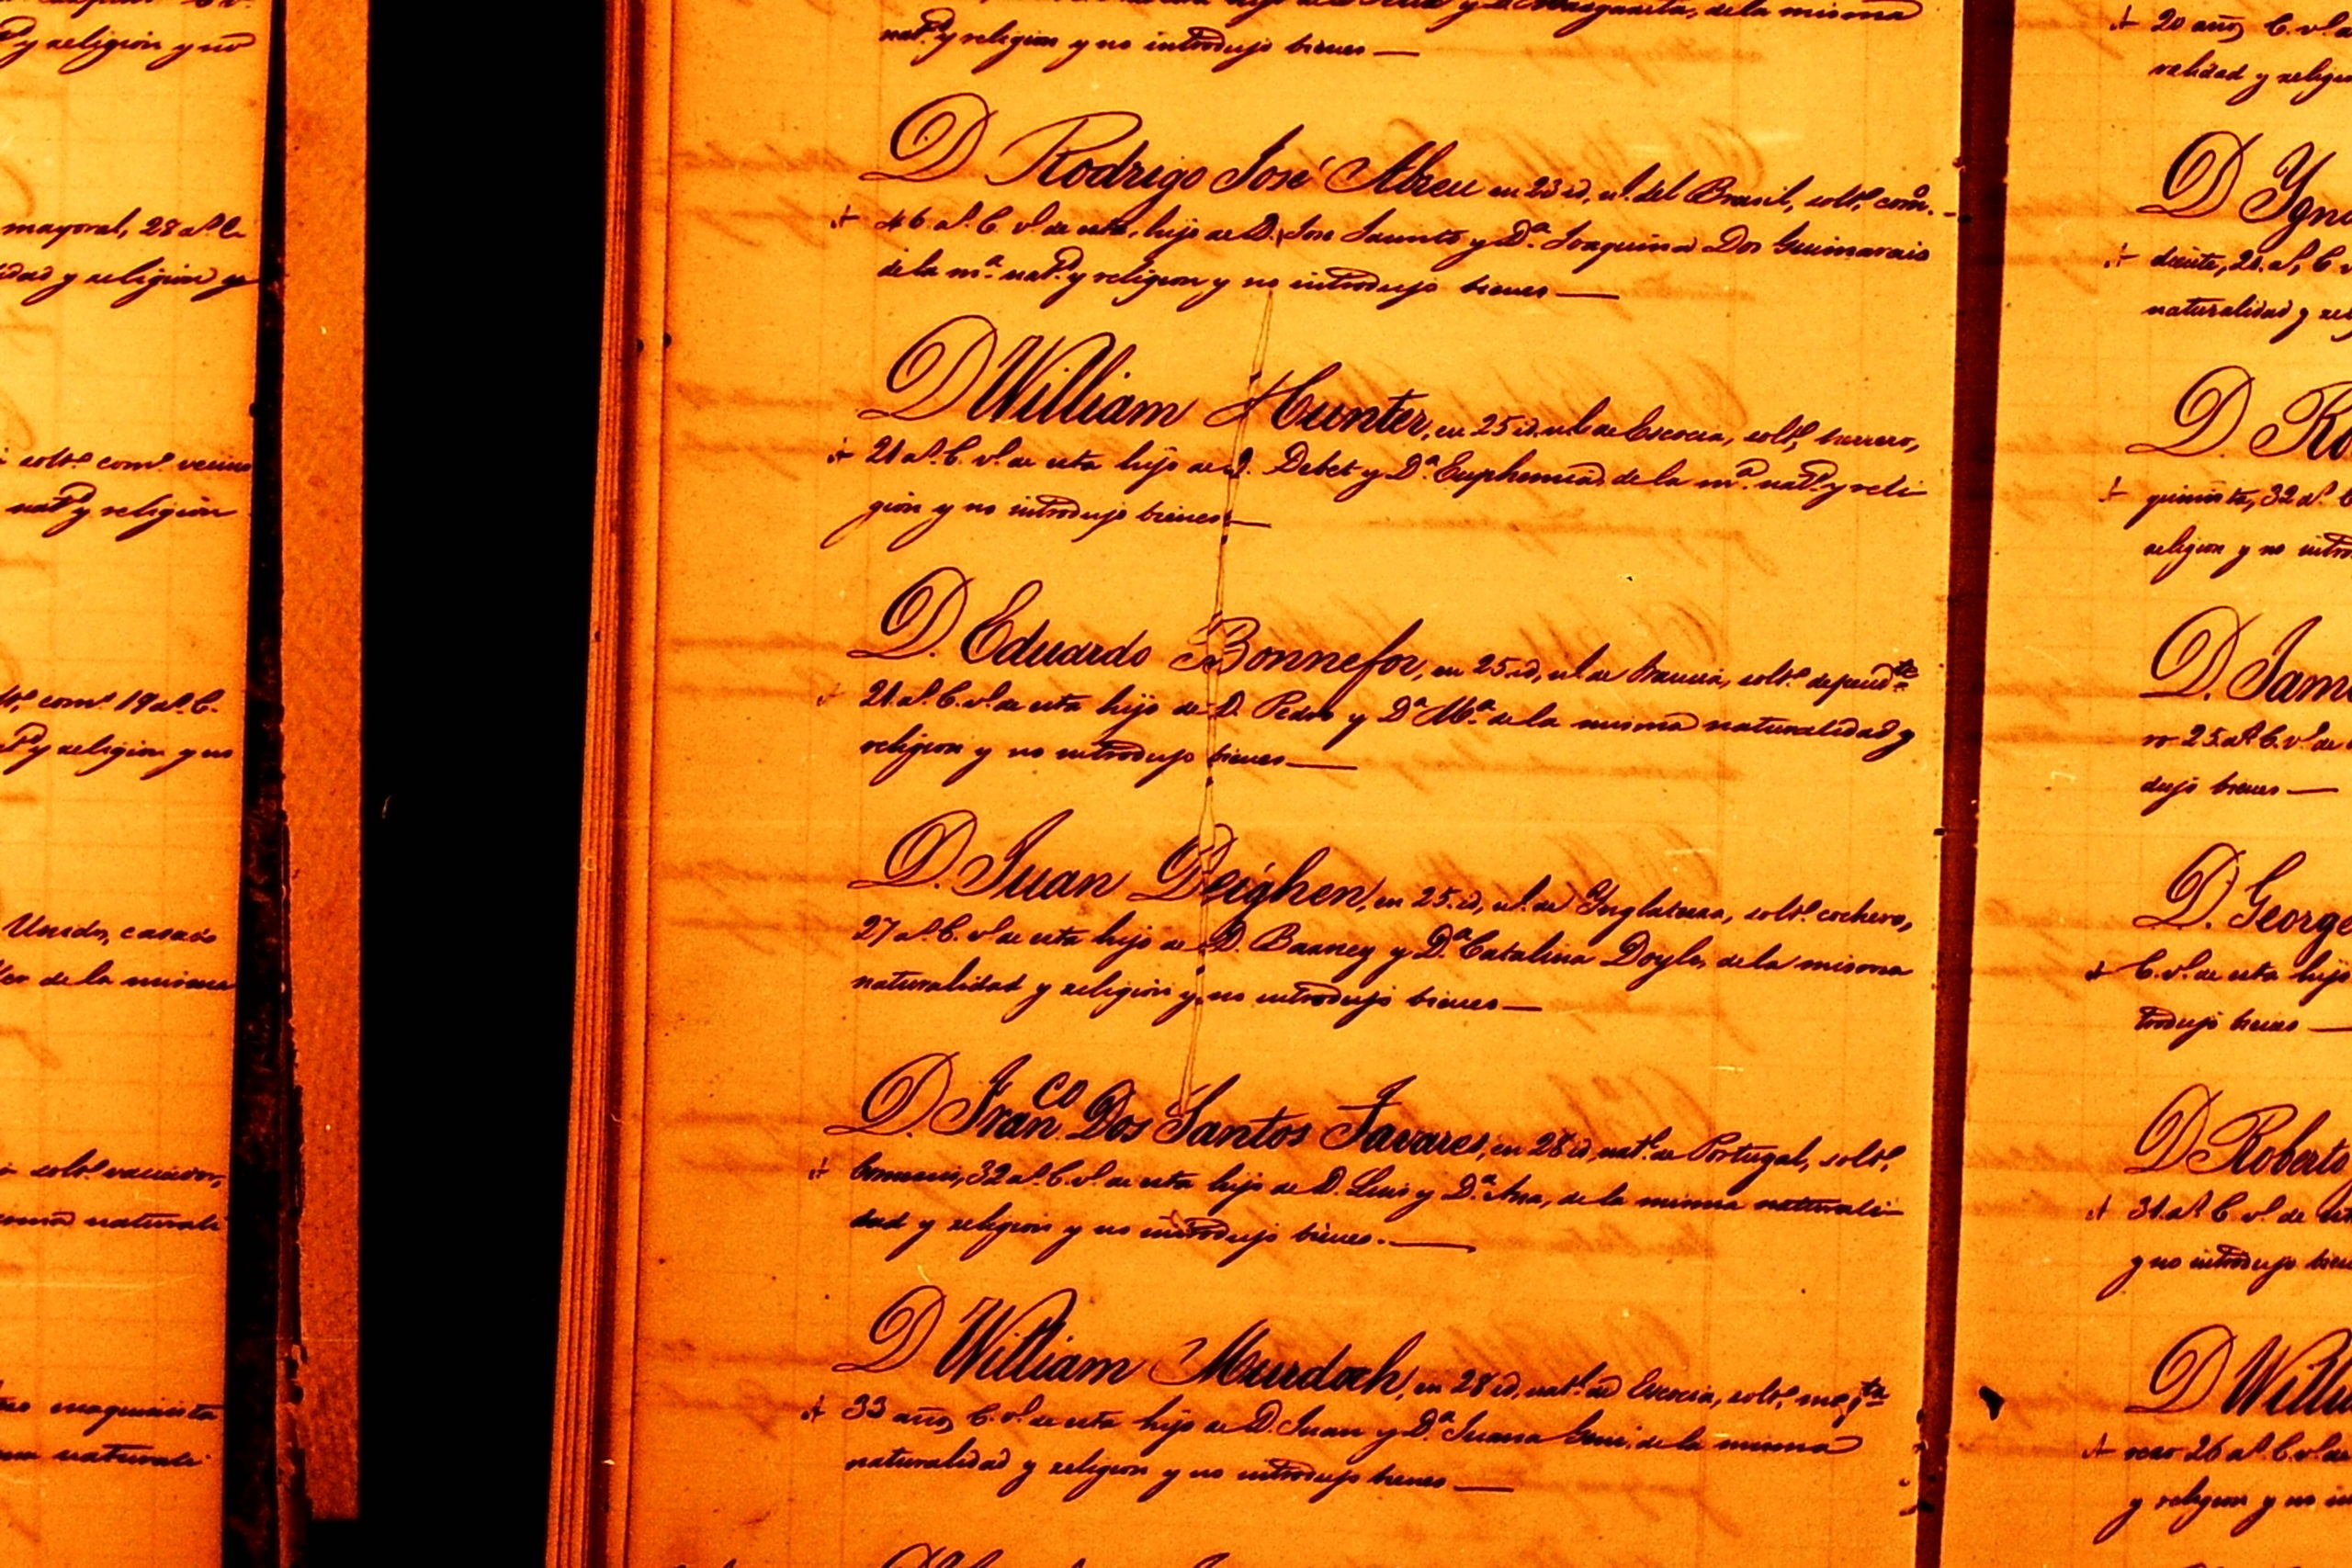 y religion y no
mayoral, 28 a.s C.
idad y religion y
solt.o com.e vecino
nat.d y religion
com.e 19 a.s C.
y religion y no
Unidos, casado
de la misma
solt.o
naturali
maquinista
naturali
de la misma
nat.d y religion y no introdujo bienes —
D Rodrigo José Abreu en 23 id, n.l del Brasil, solt.o com.o
+ 46 a.s C. v.o de esta, hijo de D. Jose Jacinto y D.a Joaquina Dos Guimarais
de la m.a nat.d y religion y no introdujo bienes —
D William Hunter, en 25 id. n.l de Escocia, solt.o herrero,
+ 21 a.s C. v.o de esta hijo de D. Debet y D.a Euphemia, de la m.a nat.d y reli
gion y no introdujo bienes —
D. Eduardo Bonnefor, en 25 id, n.l de Francia, solt.o depend.te
21 a.s C. v.o de esta hijo de D. Pedro y D.a M.a de la misma naturalidad y
religion y no introdujo bienes —
D. Juan Deighen, en 25 id, n.l de Ynglaterra, solt.o cochero,
27 a.s C. v.o de esta hijo de D. Baaney y D.a Catalina Doyle, de la misma
naturalidad y religion y no introdujo bienes —
D. Fran.co Dos Santos Tavares, en 28 id, nat.l de Portugal, solt.o
32 a.s C. v.o de esta hijo de D. Luis y D.a Ana, de la misma naturali-
dad y religion y no introdujo bienes. —
D William Murdoch, en 28 id, nat.l de Escocia, solt.o
+ 33 años, C. v.o de esta hijo de D. Juan y D.a Juana de la misma
naturalidad y religion y no introdujo bienes —
+ 20 años, C. v.o
ralidad y
D Ygn
naturalidad y
D. Ro
32 a.s
religion y no
D. Jam
25 a.s C. v.o de
dujo bienes —
D. George
+ C. v.o de esta hijo
trodujo bienes —
D Roberto
+ 31 a.s C v.o de
y no introdujo
D Willi
26 a.s C. v.o de
y religion y no